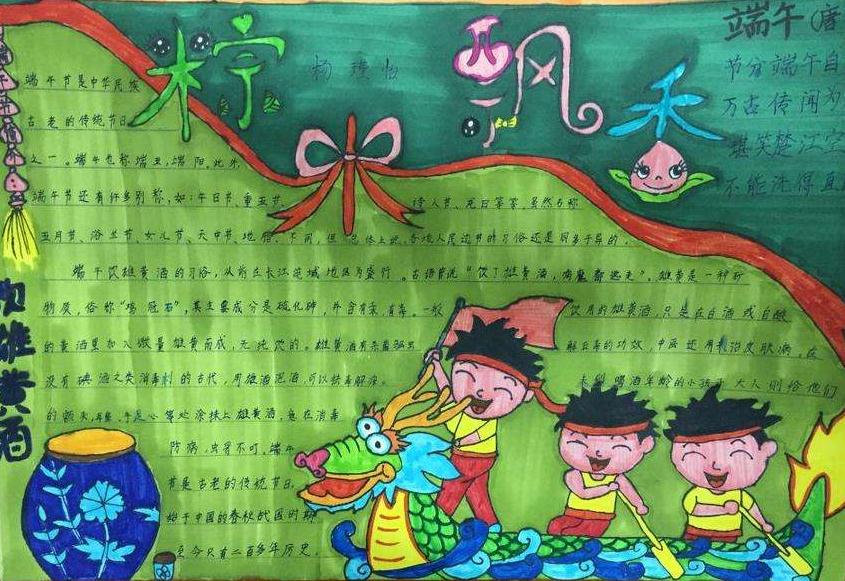 柠飘禾
端午(唐
节分端午自
万古传闻为
堪笑楚江空
不能洗得直
端午节是中华民族
古老的传统节日
之一。端午也称端五,端阳。此外,
端午节还有许多别称,如:午日节、重五节、
诗人节、 等等。虽然名称
五月节、浴兰节、女儿节、天中节、地腊、
不同,但总体上说,各地人民过节的习俗还是同多于异的。
端午饮雄黄酒的习俗,从前在长江流域地区为盛行。古语曾说“饮了雄黄酒,病魔都远走”。雄黄是一种矿
物质,俗称“鸡冠石”,其主要成分是硫化砷,并含有汞,有毒。一般
饮用的雄黄酒,只是在白酒或自酿
的黄酒里加入微量雄黄而成,无纯饮的。雄黄酒有杀菌驱虫
解五毒的功效,中医还用来治皮肤病。在
没有碘酒之类消毒剂的古代,用雄黄泡酒,可以祛毒解痒。
未到喝酒年龄的小孩子,大人则给他们
的额头、耳鼻、手足心等处涂抹上雄黄酒,意在消毒
防病,虫豸不叮。端午
节是古老的传统节日,
始于中国的春秋战国时期
至今只有二百多年历史。
雄黄酒